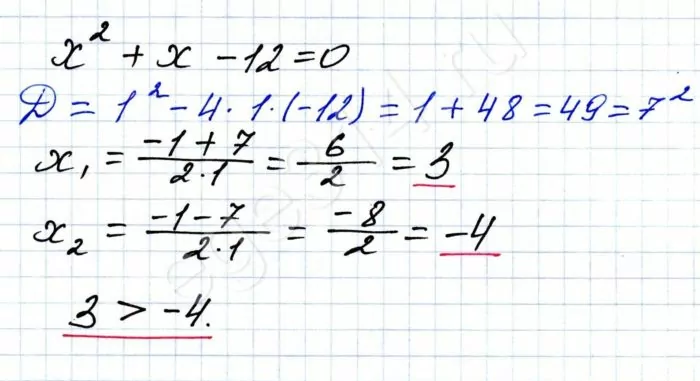 x² + x - 12 = 0
Д = 1² - 4 · 1 · (-12) = 1 + 48 = 49 = 7²
x₁ = (-1 + 7)/(2 · 1) = 6/2 = 3
x₂ = (-1 - 7)/(2 · 1) = -8/2 = -4
3 > -4.